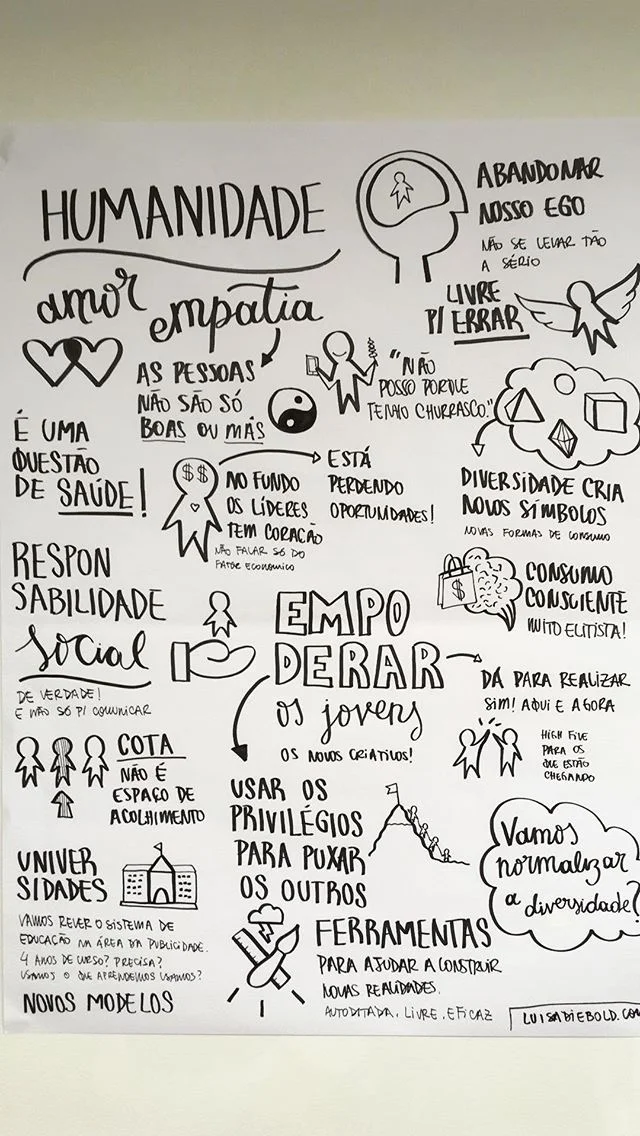 HUMANIDADE
amor
empatia
ABANDONAR
NOSSO EGO
NÃO SE LEVAR TÃO
A SÉRIO
LIVRE
P/ ERRAR
AS PESSOAS
NÃO SÃO SÓ
BOAS OU MÁS
"NÃO
POSSO PORQUE
TENHO CHURRASCO."
É UMA
QUESTÃO
DE SAÚDE!
$ $
NO FUNDO
OS LÍDERES
TEM CORAÇÃO
NÃO FALAR SÓ DO
FATOR ECONOMICO
ESTÁ
PERDENDO
OPORTUNIDADES!
DIVERSIDADE CRIA
NOVOS SÍMBOLOS
NOVAS FORMAS DE CONSUMO
$
CONSUMO
CONSCIENTE
MUITO ELITISTA!
RESPON
SABILIDADE
social
DE VERDADE!
E NÃO SÓ P/ COMUNICAR
EMPO
DERAR
os jovens
OS NOVOS CRIATIVOS!
DÁ PARA REALIZAR
SIM! AQUI E AGORA
HIGH FIVE
PARA OS
QUE ESTÃO
CHEGANDO
COTA
NÃO É
ESPAÇO DE
ACOLHIMENTO
USAR OS
PRIVILÉGIOS
PARA PUXAR
OS OUTROS
Vamos
normalizar
a diversidade?
UNIVER
SIDADES
VAMOS REVER O SISTEMA DE
EDUCAÇÃO NA ÁREA DA PUBLICIDADE.
4 ANOS DE CURSO? PRECISA?
USAMOS O QUE APRENDEMOS USAMOS?
NOVOS MODELOS
FERRAMENTAS
PARA AJUDAR A CONSTRUIR
NOVAS REALIDADES.
AUTODITADA, LIVRE, EFICAZ
LUISADIEBOLD.COM